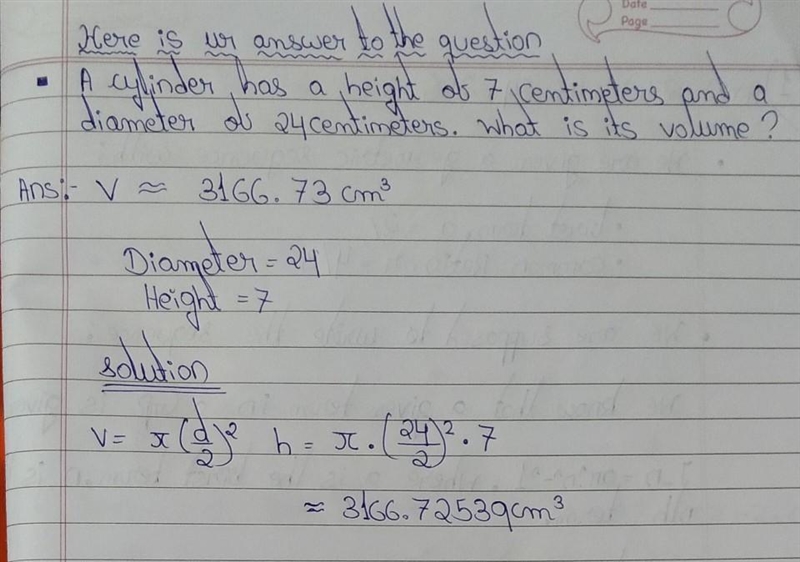 Date
Page
Here is ur answer to the question
▪ A cylinder has a height of 7 centimeters and a
diameter of 24centimeters. What is its volume?
Ans:- V ≈ 3166.73 cm³
Diameter = 24
Height = 7
solution
V = π(d/2)² h = π · (24/2)² · 7
≈ 3166.72539cm³